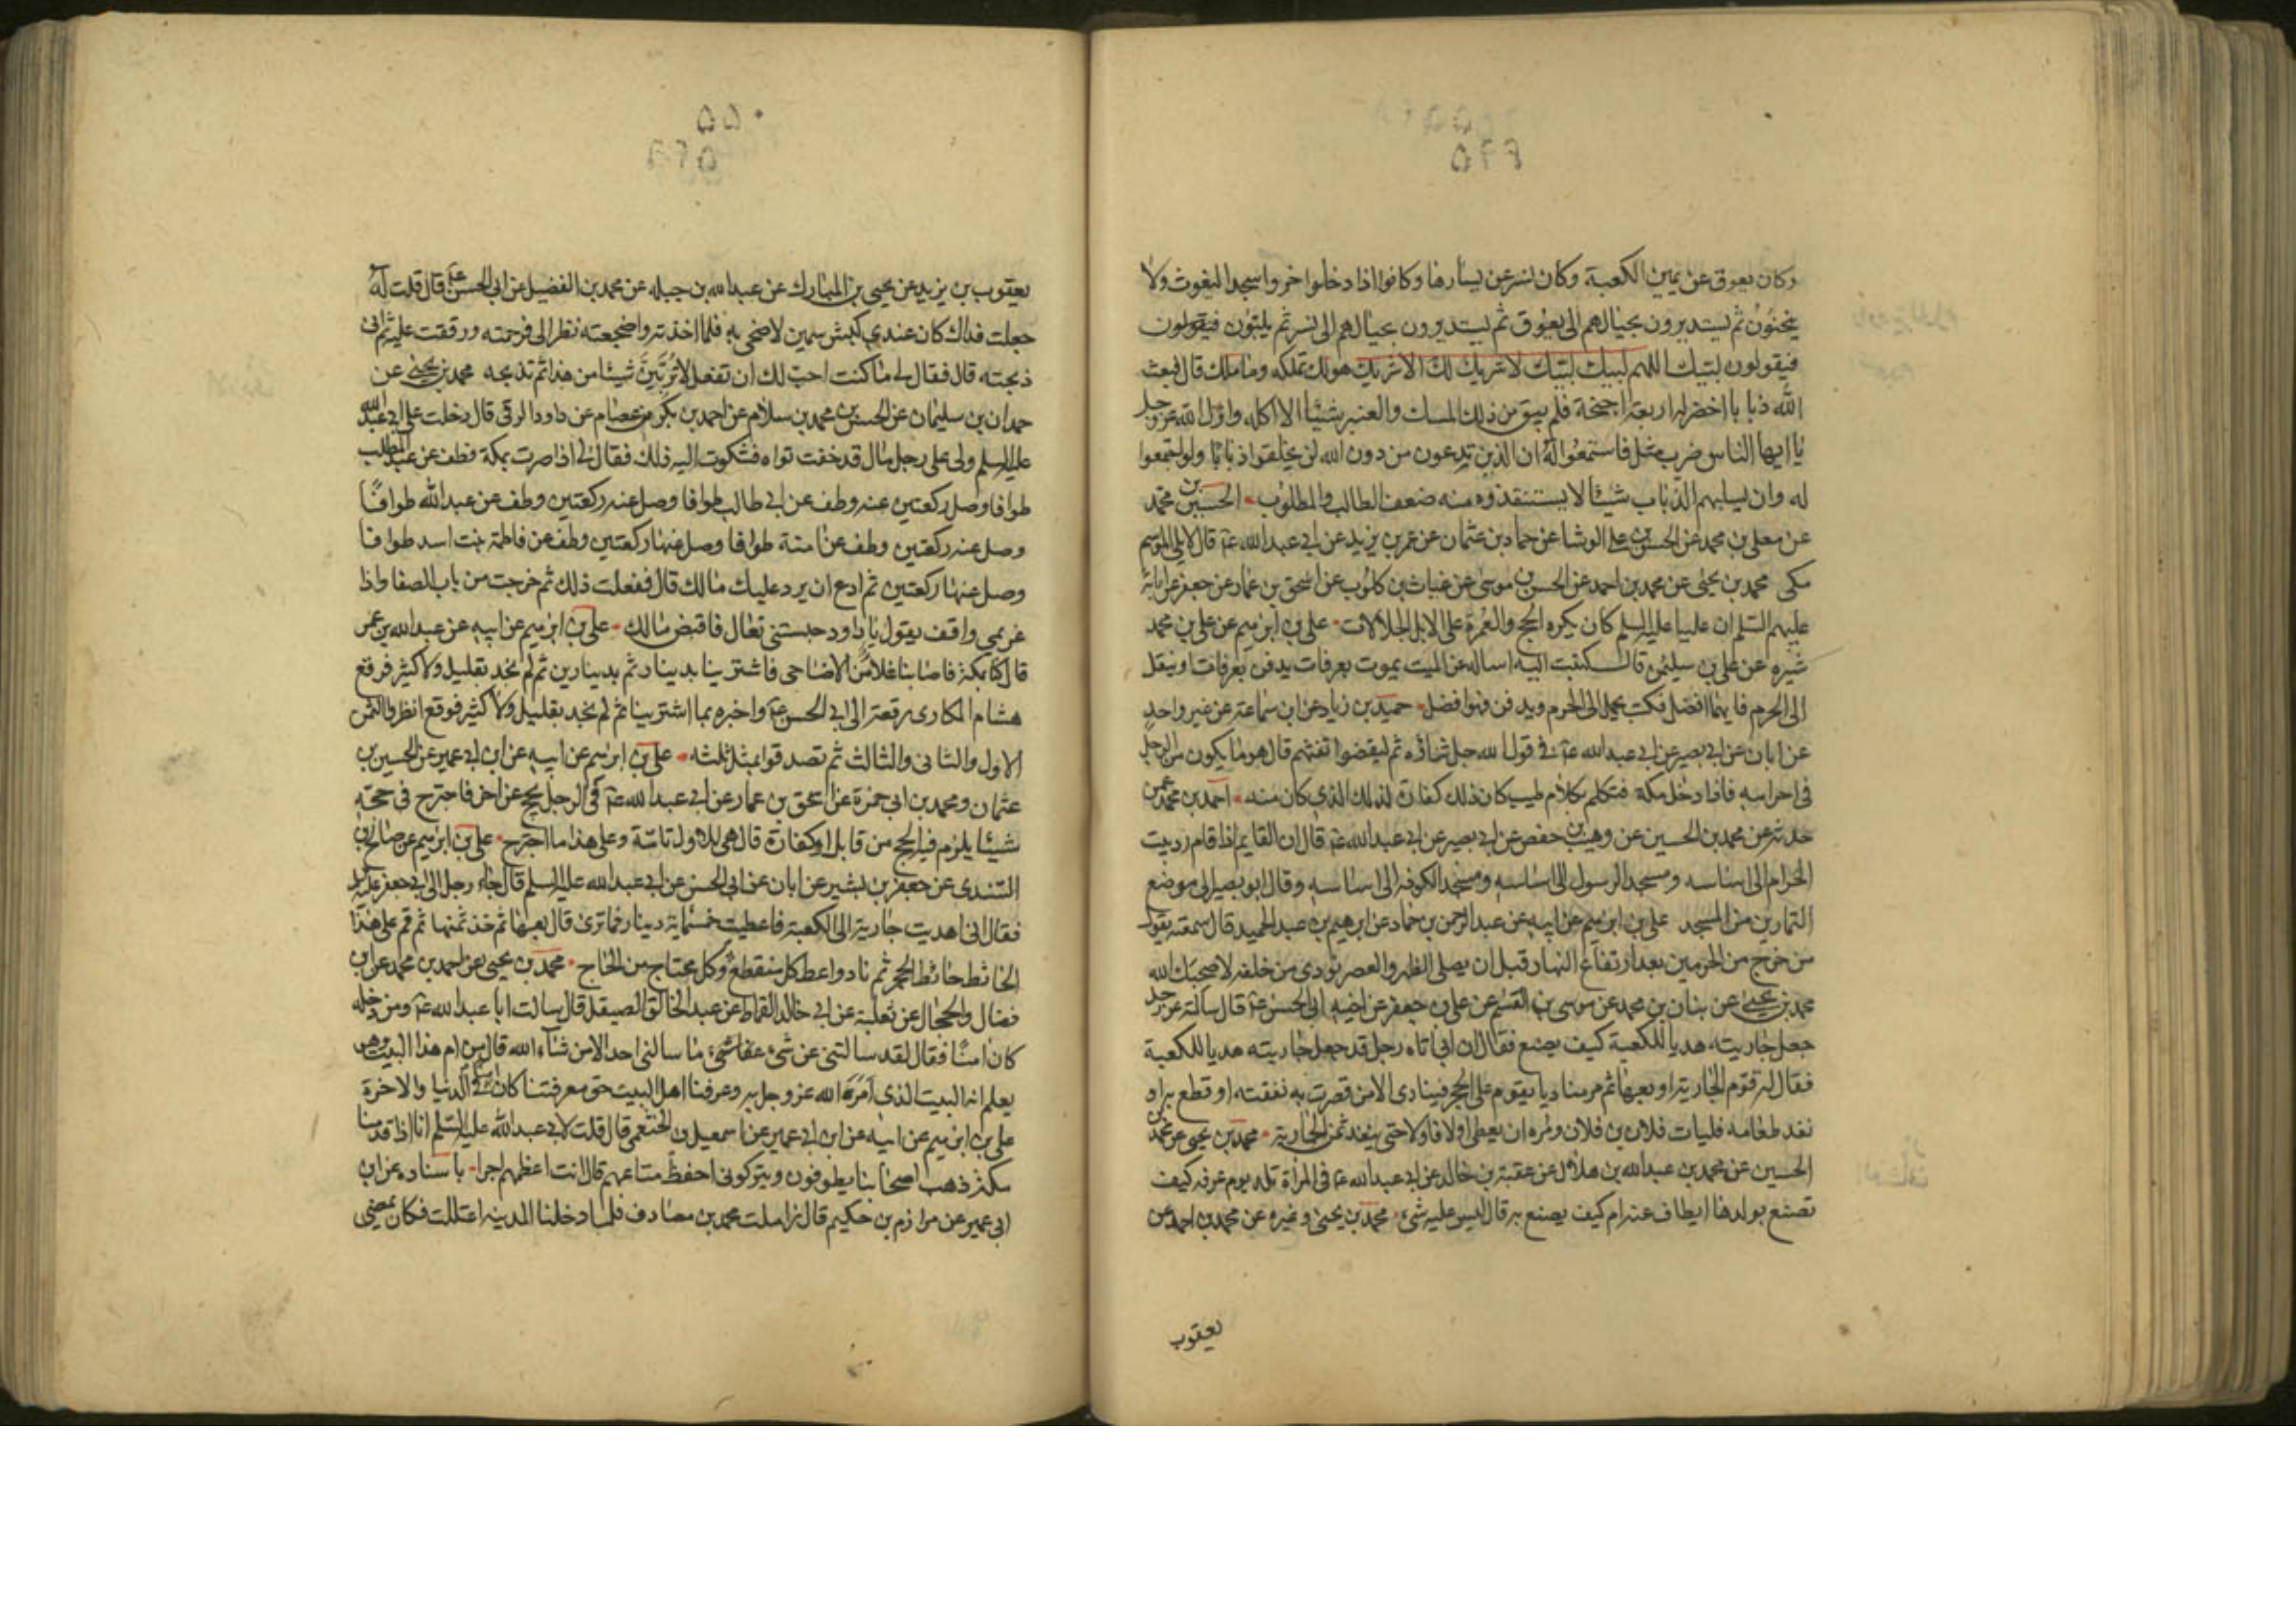 ۵۴۹
وكان يعوق عن يمين الكعبة وكان نسر عن يسارها وكانوا اذا دخلوا خروا سجدا ليغوث ولا
ينحنون ثم يستديرون بحيالهم الى يعوق ثم يستديرون بحيالهم الى نسر ثم يلبون فيقولون
فيقولون لبيك اللهم لبيك لبيك لا شريك لك الا شريك هو لك تملكه وما ملك قال فبعث
الله ذبابا اخضر له اربعة اجنحة فلم يبق من ذلك المسك والعنبر شيئا الا اكله وانزل الله عز وجل
يا ايها الناس ضرب مثل فاستمعوا له ان الذين تدعون من دون الله لن يخلقوا ذبابا ولو اجتمعوا
له وان يسلبهم الذباب شيئا لا يستنقذوه منه ضعف الطالب والمطلوب الحسين بن محمد
عن معلى بن محمد عن الحسن بن علي الوشا عن حماد بن عثمان عن عمر بن يزيد عن ابي عبد الله ع قال لا يلي الموسم
مكى محمد بن يحيى عن محمد بن احمد عن الحسن بن موسى عن غياث بن كلوب عن اسحق بن عمار عن جعفر عن ابائه
عليهم السلم ان عليا عليه السلم كان يكره الحج والعمرة على الابل الجلالات علي بن ابرهيم عن علي بن محمد
شيره عن علي بن سليمن قال كتبت اليه اساله عن الميت يموت بعرفات يدفن بعرفات او ينقل
الى الحرم فايهما افضل فكتب يحمل الى الحرم ويدفن فهو افضل حميد بن زياد عن ابن سماعة عن غير واحد
عن ابان عن ابي بصير عن ابي عبد الله ع في قول الله جل ثناؤه ثم ليقضوا تفثهم قال هو ما يكون من الرجل
في احرامه فاذا دخل مكة فتكلم بكلام طيب كان ذلك كفارة لذلك الذي كان منه احمد بن محمد عمن
حدثه عن محمد بن الحسين عن وهيب بن حفص عن ابي بصير عن ابي عبد الله ع قال ان القايم اذا قام رد بيت
الحرام الى اساسه ومسجد الرسول الى اساسه ومسجد الكوفة الى اساسه وقال ابو بصير الى موضع
التمارين من المسجد علي بن ابرهيم عن ابيه عن عبد الرحمن بن حماد عن ابرهيم بن عبد الحميد قال سمعته يقول
من خرج من الحرمين بعد ارتفاع النهار قبل ان يصلي الظهر والعصر نودي من خلفه لا صحبك الله
محمد بن يحيى عن بنان بن محمد عن موسى بن القسم عن علي بن جعفر عن اخيه ابي الحسن ع قال سالته عن رجل
جعل جاريته هديا للكعبة كيف يصنع فقال ان ابي اتاه رجل قد جعل جاريته هديا للكعبة
فقال له قوم الجارية او بعها ثم مر مناديا يقوم على الحجر فينادى الا من قصرت به نفقته او قطع به او
نفد طعامه فليات فلان بن فلان ومره ان يعطي اولا فاولا حتى ينفد ثمن الجارية محمد بن يحيى عن محمد بن
الحسين عن محمد بن عبد الله بن هلال عن عقبة بن خالد عن ابي عبد الله ع في المراة تلد يوم عرفة كيف
تصنع بولدها ايطاف عنه ام كيف يصنع به قال ليس عليه شئ محمد بن يحيى وغيره عن محمد بن احمد عن
يعقوب
۵۵۰
يعقوب بن يزيد عن يحيى بن المبارك عن عبد الله بن جبله عن محمد بن الفضيل عن ابي الحسن ع قال قلت له
جعلت فداك كان عندي كبش سمين لاضحي به فلما اخذته واضجعته نظر الي فرحمته ورققت عليه ثم اني
ذبحته قال فقال لي ما كنت احب لك ان تفعل لا تربين شيئا من هذا ثم تذبحه محمد بن يحيى عن
حمدان بن سليمان عن الحسن بن محمد بن سلام عن احمد بن بكر بن عصام عن داود الرقي قال دخلت على ابي عبد الله
عليه السلم ولي على رجل مال قد خفت تواه فشكوت اليه ذلك فقال لي اذا صرت بمكة فطف عن عبد المطلب
طوافا وصل ركعتين عنه وطف عن ابي طالب طوافا وصل عنه ركعتين وطف عن عبد الله طوافا
وصل عنه ركعتين وطف عن امنة طوافا وصل عنها ركعتين وطف عن فاطمة بنت اسد طوافا
وصل عنها ركعتين ثم ادع ان يرد عليك مالك قال ففعلت ذلك ثم خرجت من باب الصفا واذا
غريمي واقف يقول يا داود حبستني تعال فاقبض مالك علي بن ابرهيم عن ابيه عن عبد الله بن عمر
قال كنا بمكة فاصابنا غلاء من الاضاحي فاشترينا بدينار ثم بدينارين ثم لم نجد بقليل ولا كثير فرقع
هشام المكاري رقعة الى ابي الحسن ع واخبره بما اشترينا ثم لم نجد بقليل ولا كثير فوقع انظروا الثمن
الاول والثاني والثالث ثم تصدقوا بمثل ثلثه علي بن ابرهيم عن ابيه عن ابن ابي عمير عن الحسين بن
عثمان ومحمد بن ابي حمزة عن اسحق بن عمار عن ابي عبد الله ع في الرجل يحج عن اخر فاجترح في حجته
شيئا يلزم فيه الحج من قابل او كفارة قال هي للاول تامة وعلى هذا ما اجترح علي بن ابرهيم عن صالح بن
السندي عن جعفر بن بشير عن ابان عن ابي الحسن عن ابي عبد الله عليه السلم قال جاء رجل الى ابي جعفر عليه السلم
فقال اني اهديت جارية الى الكعبة فاعطيت خمسماية دينار فما ترى قال بعها ثم خذ ثمنها ثم قم على هذا
الحائط حائط الحجر ثم ناد واعط كل منقطع وكل محتاج من الحاج محمد بن يحيى عن احمد بن محمد عن ابن
فضال والحجال عن ثعلبة عن ابي خالد القماط عن عبد الخالق الصيقل قال سالت ابا عبد الله ع ومن دخله
كان امنا فقال لقد سالتني عن شئ عفا شئ ما سالني احد الا من شاء الله قال من ام هذا البيت وهو
يعلم انه البيت الذي امره الله عز وجل به وعرفنا اهل البيت حق معرفتنا كان امنا في الدنيا والاخرة
علي بن ابرهيم عن ابيه عن ابن ابي عمير عن اسمعيل بن الخثعمي قال قلت لابي عبد الله عليه السلم انا اذا قدمنا
مكة ذهب اصحابنا يطوفون ويتركوني احفظ متاعهم قال انت اعظمهم اجرا باسناده عن ابن
ابي عمير عن مرازم بن حكيم قال زاملت محمد بن مصادف فلما دخلنا المدينة اعتللت فكان يمضي